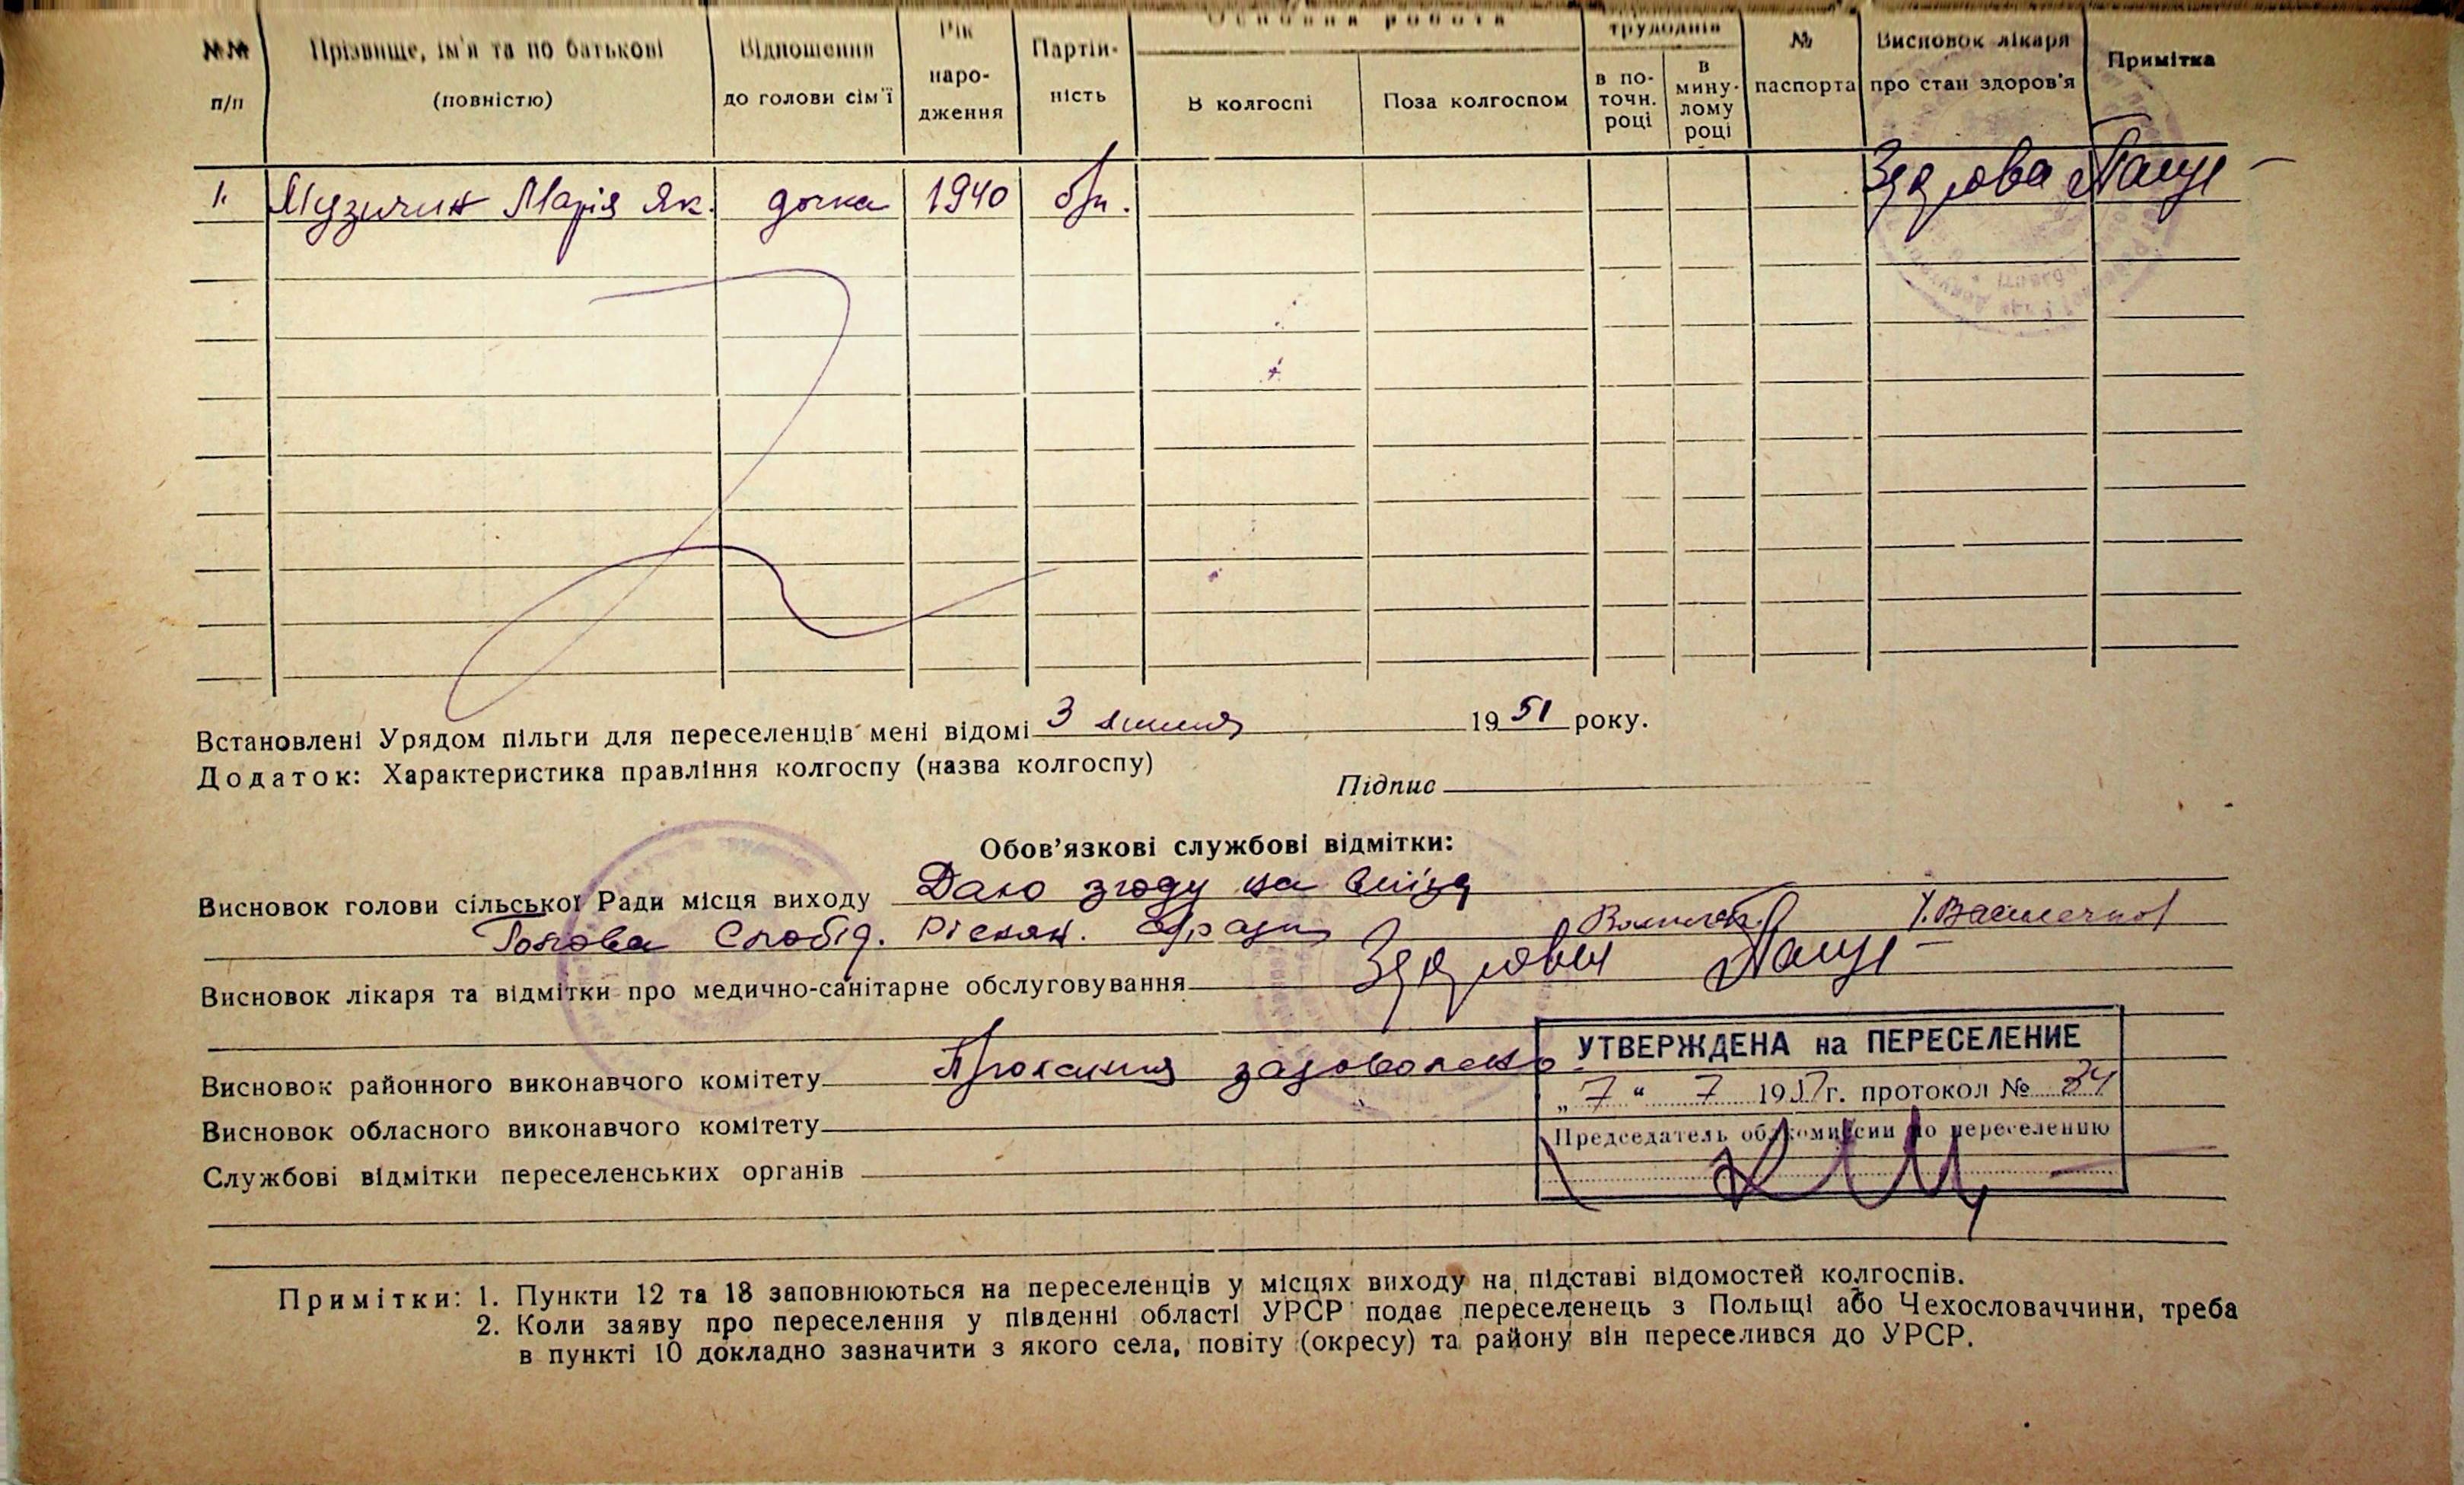 Основна робота
трудоднів
№№ п/п
Прізвище, ім'я та по батькові (повністю)
Відношення до голови сім'ї
Рік народження
Партійність
В колгоспі
Поза колгоспом
в поточн. році
в минулому році
№ паспорта
Висновок лікаря про стан здоров'я
Примітка
1. Музичин Марія Як. дочка 1940 б/п. Здорова
Встановлені Урядом пільги для переселенців мені відомі 3 липня 1951 року.
Додаток: Характеристика правління колгоспу (назва колгоспу)
Підпис
Обов'язкові службові відмітки:
Висновок голови сільської Ради місця виходу Даю згоду на виїзд
Голова Слобід.
Висновок лікаря та відмітки про медично-санітарне обслуговування Здорові
Висновок районного виконавчого комітету Прохання задоволено
УТВЕРЖДЕНА на ПЕРЕСЕЛЕНИЕ
„7“ 7 1951г. протокол № 24
Висновок обласного виконавчого комітету
Председатель облкомиссии по переселению
Службові відмітки переселенських органів
Примітки: 1. Пункти 12 та 18 заповнюються на переселенців у місцях виходу на підставі відомостей колгоспів.
2. Коли заяву про переселення у південні області УРСР подає переселенець з Польщі або Чехословаччини, треба
в пункті 10 докладно зазначити з якого села, повіту (окресу) та району він переселився до УРСР.